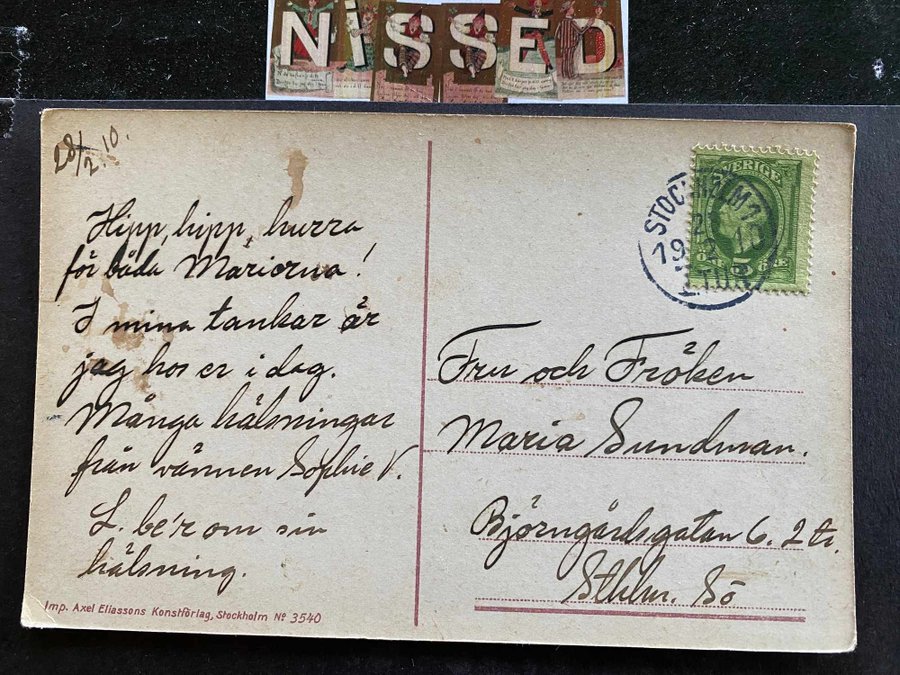 NiSSED
28/2.10.
Hipp, hipp, hurra
för båda Mariorna!
I mina tankar är
jag hos er i dag.
Många hälsningar
från vännen Sophie V.
L. be'r om sin
hälsning.
Imp. Axel Eliassons Konstförlag, Stockholm Nº 3540
SVERIGE
STOCKHOLM 1
19
1.TUR
5
Fru och Fröken
Maria Sundman.
Björngårdsgatan 6. 2 tr.
Sthlm. Sö